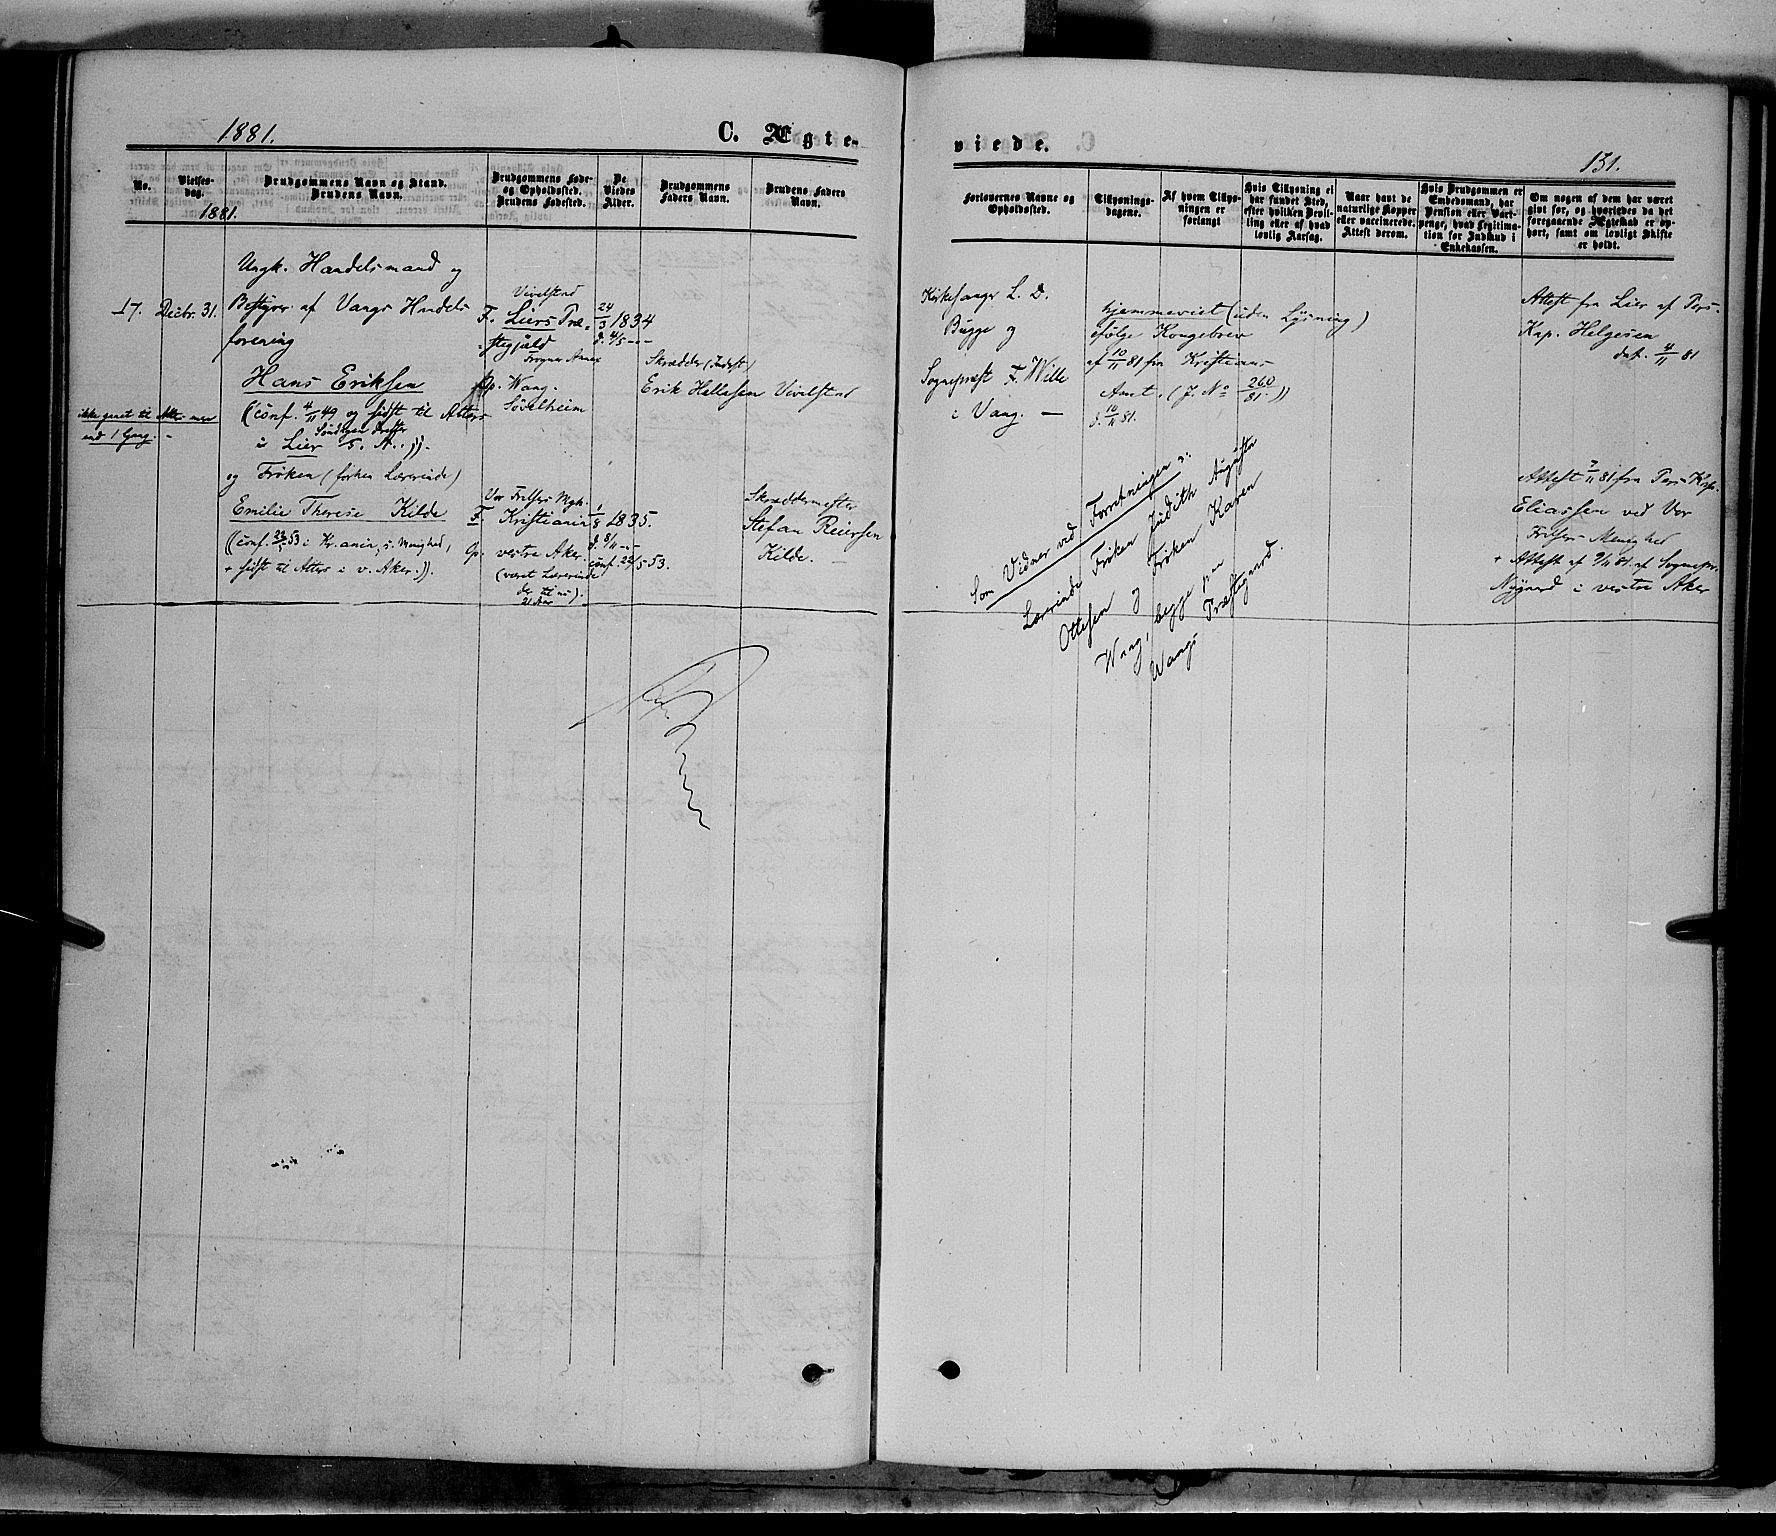 1881.
C. Ægte-
No.
Vielses-
dag.
Brudgommens Navn og Stand.
Brudens Navn.
Brudgommens Føde-
og Opholdssted.
Brudens Fødested.
De
Viedes
Alder.
Brudgommens
Faders Navn.
Brudens Faders
Navn.
1881.
17.
Decbr. 31.
Ungk. Handelsmand og
Bestyrer af Vangs Handels
forening
Hans Eriksen
(conf. 4/11 49 og sidst til Alters
i Lier
og Frøken (forhen Lærerinde)
Emilie Therese Kilde
((conf. 22/5 53 i Kr.ania, s. Menighed,
+ sidst til Alters i v. Aker.)).
ikke gaaet til Alters mere
end 1 Gang. -
Vivelstad
F. Liers Præ-
stegjæld
Frogner Annex
Op. Vang.
Sødelheim
Vor Frelsers Mgh.
F. Kristiania
Op. vestre Aker.
(været Lærerinde
der til nu).
21 Aar
24/3 1834
d. 4/5 - -
1/8 1835.
d. 8/11 - -
conf. 22/5 53.
Skrædder (Inderst)
Erik Hellesen Vivelstad
Skræddermester
Stefan Reiersen
Kilde. -
viede.
151.
Forlovernes Navne og
Opholdssted.
Tillysnings-
dagene.
Af hvem Tillys-
ningen er
forlangt
Hvis Tillysning ei
har fundet Sted,
efter hvilken Bevil-
ling eller af hvad
lovlig Aarsag.
Naar havt de
naturlige Kopper
eller vaccinerede.
Attest derom.
Hvis Brudgommen er
Embedsmand, har
Pension eller Vart-
penge, hvad Legitima-
tion for Indskud i
Enkekassen.
Om nogen af dem har været
gift før, og hvorledes da det
foregaaende Ægteskab er op-
hørt, samt om lovligt Skifte
er holdt.
Kirkesanger L. D.
Bugge og
Sognepræst F. Wille
i Vang. -
hjemmeviet (uden Lysning)
ifølge Kongebrev
af 10/11 81 fra Kristians
Amt. (J. No 260/81.))
d. 10/11 81.
Som Vidner ved Forretningen:
Lærerinde Frøken Judith Augusta
Ottesen og Frøken Karen
Wang, begge paa
Wangs Præstegaard.
Attest fra Lier af Pers.
Kap. Helgesen
dat. 4/11 81
Attest 7/11 81 fra Pers. Kap.
Eliassen ved Vor
Frelsers Menighed
+ Attest af 9/11 81. af Sognepr.
Nygaard i vestre Aker